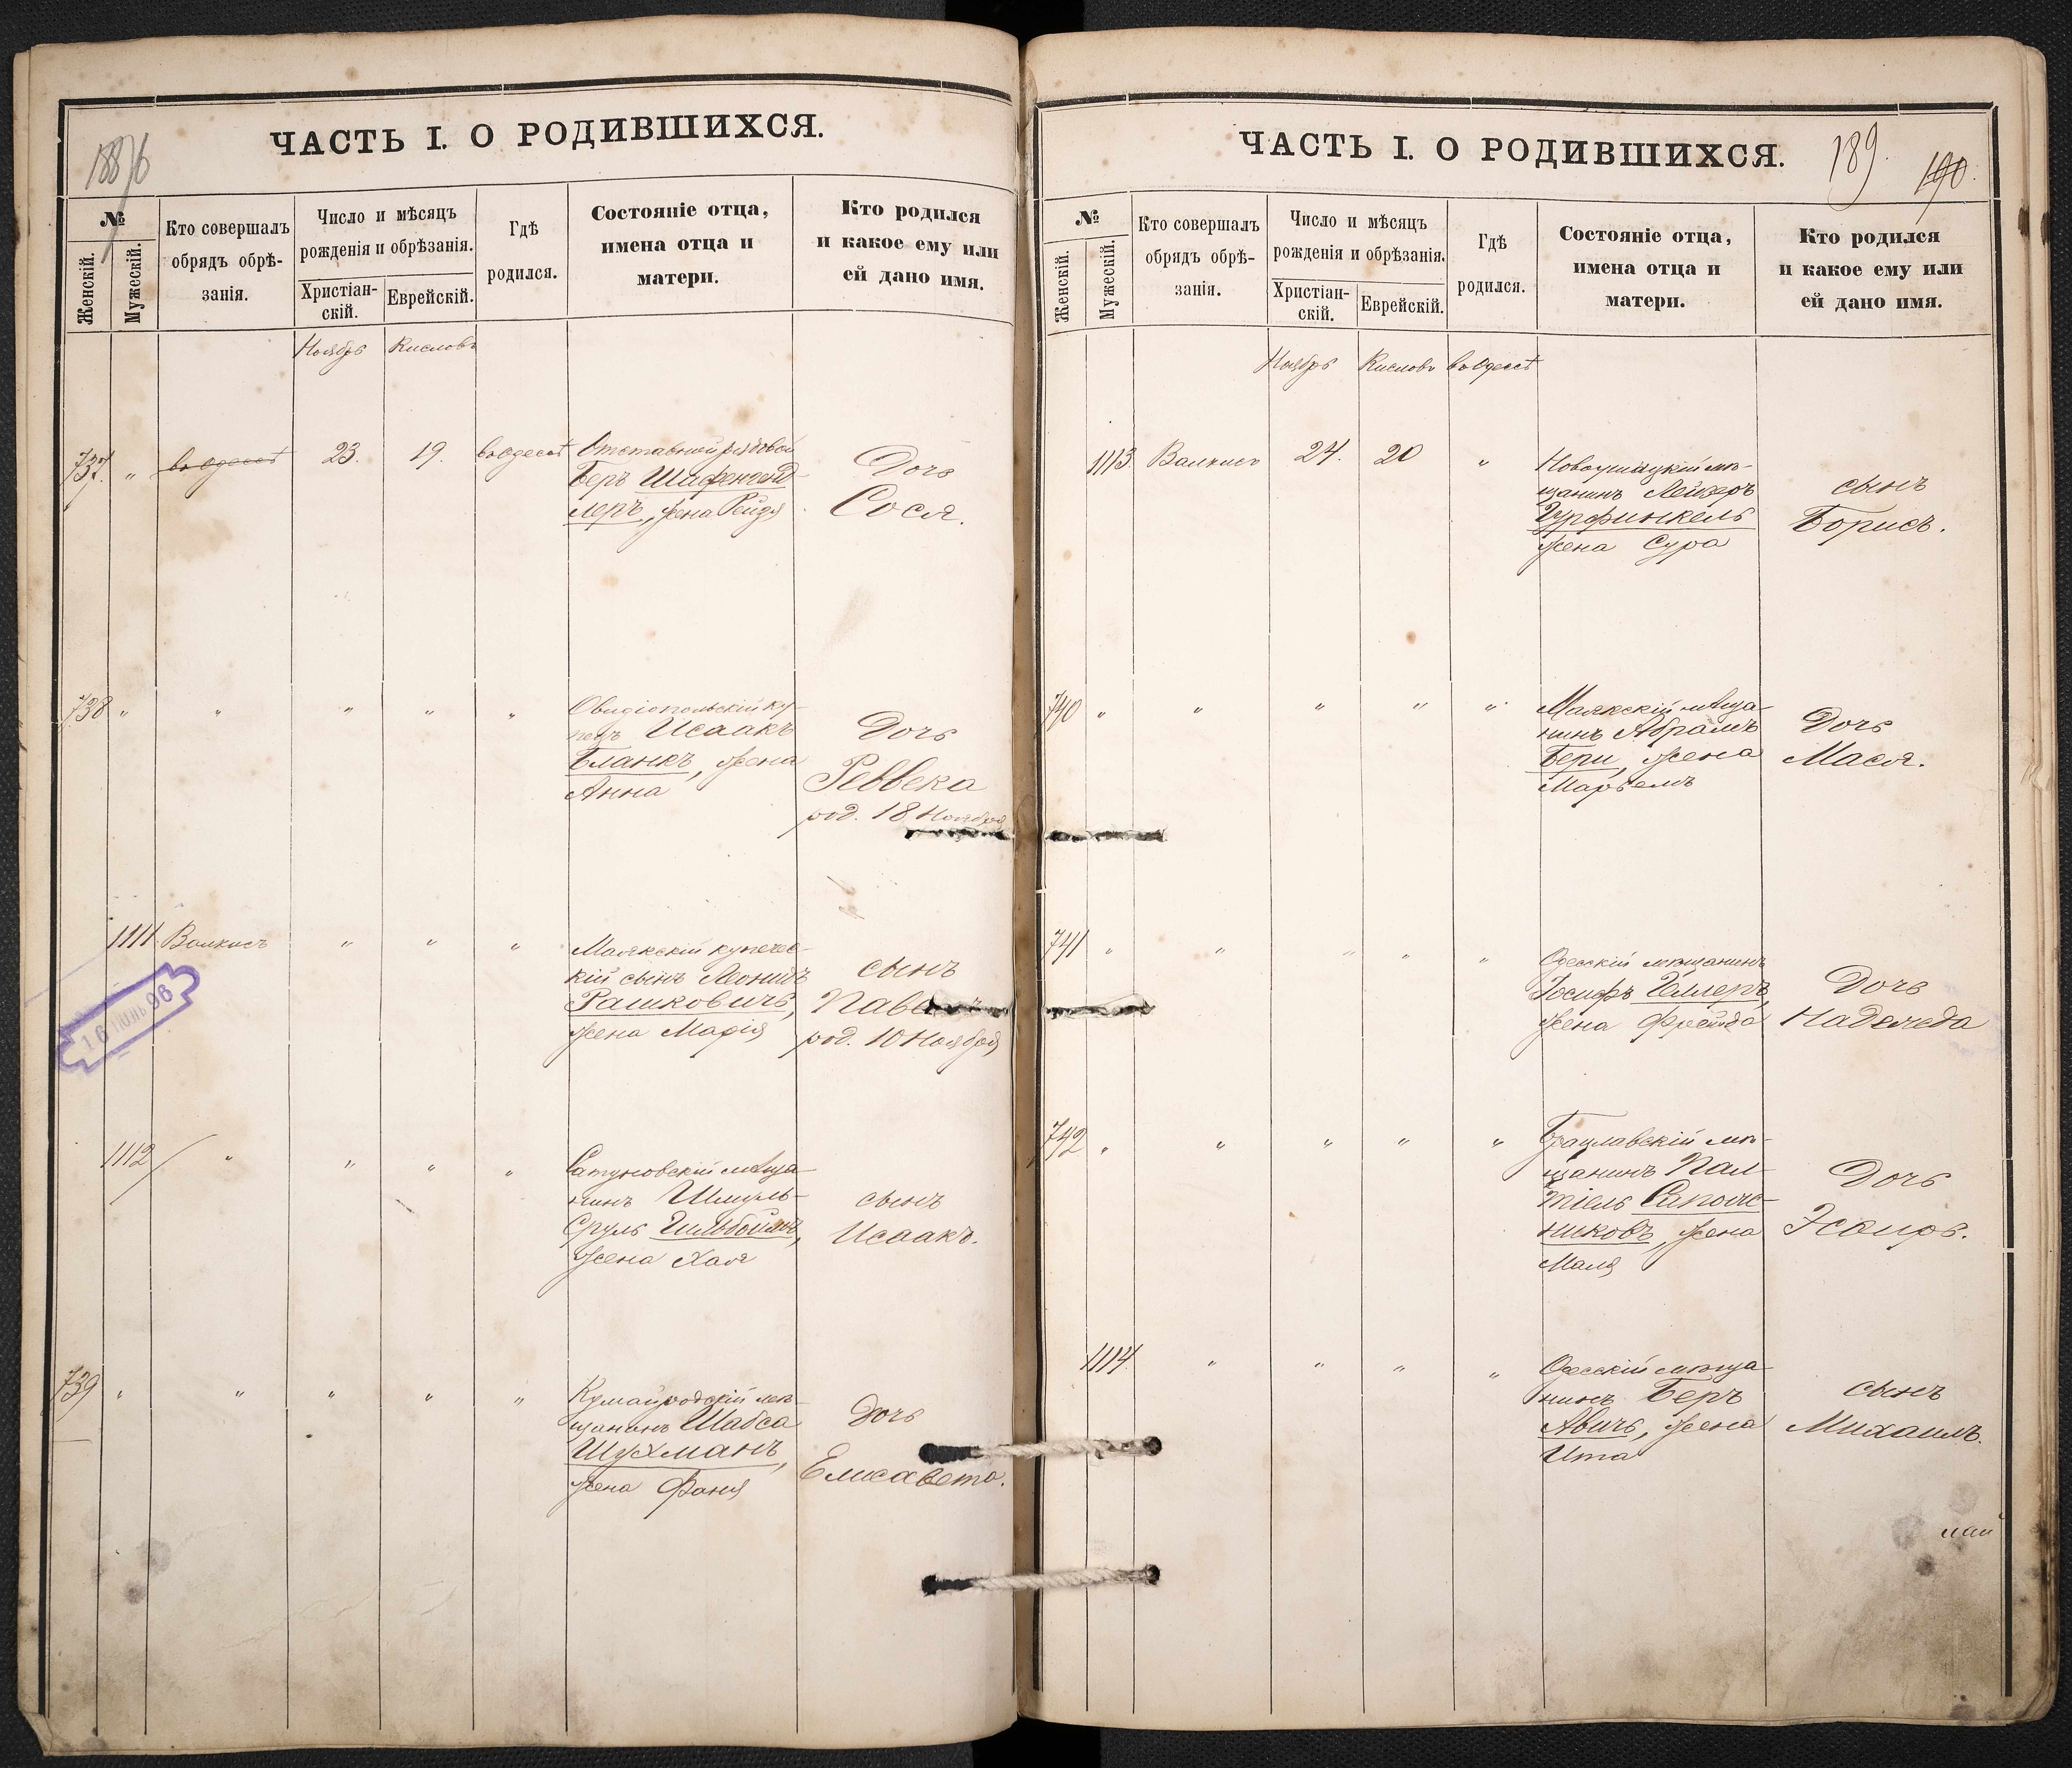 ЧАСТЬ I. О РОДИВШИХСЯ.
№
Женскій.
Мужескій.
Кто совершалъ
обрядъ обрѣ-
занія.
Число и мѣсяцъ
рожденія и обрѣзанія.
Христіан-
скій.
Еврейскій.
Гдѣ
родился.
Состояніе отца,
имена отца и
матери.
Кто родился
и какое ему или
ей дано имя.
Ноябрь Кислевъ
737. " въ Одессѣ 23. 19. въ Одессѣ
Отставной рядовой
Беръ Шафенгенд-
леръ, жена Рейзя
Дочь
Сося.
738 " " " " "
Овидіопольскій ку-
пецъ Исаакъ
Бланкъ, жена
Анна
Дочь
Реввека
род. 18 Ноября
1111 " " "
Маякскій купечес-
кій сынъ Леонидъ
Рашковичъ,
жена Марія
сынъ
род. 10 Ноября
16 ІЮНЬ 96
1112 " " " "
мѣща-
нинъ Шмуль-
Сруль
жена Хая
сынъ
Исаакъ.
739 " " " " "
мѣ-
щанинъ Шабса
Шухманъ,
жена Фаня
Дочь
Елисавета.
ЧАСТЬ I. О РОДИВШИХСЯ.
189. 190.
№
Женскій.
Мужескій.
Кто совершалъ
обрядъ обрѣ-
занія.
Число и мѣсяцъ
рожденія и обрѣзанія.
Христіан-
скій.
Еврейскій.
Гдѣ
родился.
Состояніе отца,
имена отца и
матери.
Кто родился
и какое ему или
ей дано имя.
Ноябрь Кислевъ въ Одессѣ
1113. 24. 20 "
Новоушицкій мѣ-
щанинъ Лейзеръ
Гурфинкель
жена Сура
сынъ
Борисъ.
740 " " " " "
Маякскій мѣща-
нинъ Абрамъ
Бери, жена
Дочь
Мася.
741 " " " " "
Одесскій мѣщанинъ
Іосифъ Геллеръ,
жена Фрейда
Дочь
Надежда
742 " " " " "
Брацлавскій мѣ-
щанинъ Пал-
тіель Сапож-
никовъ, жена
Маля
Дочь
Эсѳирь.
1114 " " " "
Одесскій мѣща-
нинъ Беръ
Авичъ, жена
Ита
сынъ
Михаилъ.